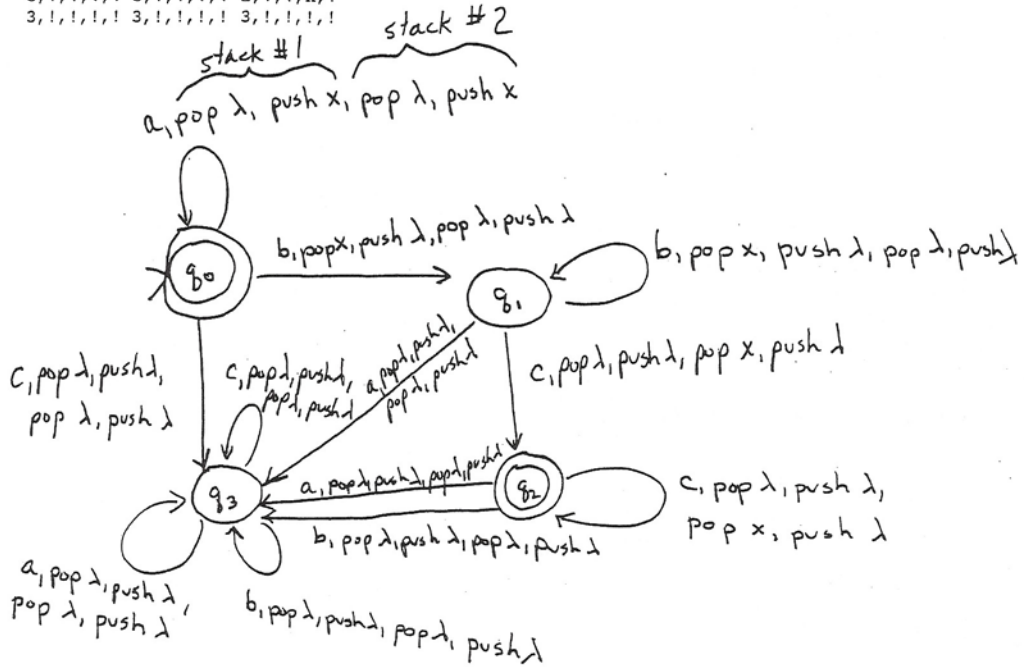 3,!,!,!,! 3,!,!,!,! 3,!,!,!,!
stack #1
stack #2
a, pop λ, push x, pop λ, push x
q0
b, pop x, push λ, pop λ, push λ
q1
b, pop x, push λ, pop λ, push λ
c, pop λ, push λ,
pop λ, push λ
c, pop λ, push λ,
pop λ, push λ
a, pop λ, push λ,
pop λ, push λ
c, pop λ, push λ, pop x, push λ
q3
a, pop λ, push λ, pop λ, push λ
q2
c, pop λ, push λ,
pop x, push λ
b, pop λ, push λ, pop λ, push λ
a, pop λ, push λ,
pop λ, push λ
b, pop λ, push λ, pop λ, push λ